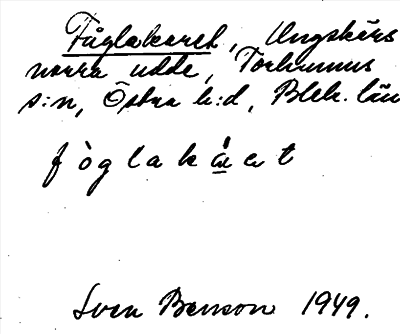 Fåglakaret, Ungskärs
norra udde, Torhamns
s:n, Östra h:d, Blek. län
fòglakáret
Sven Benson 1949.